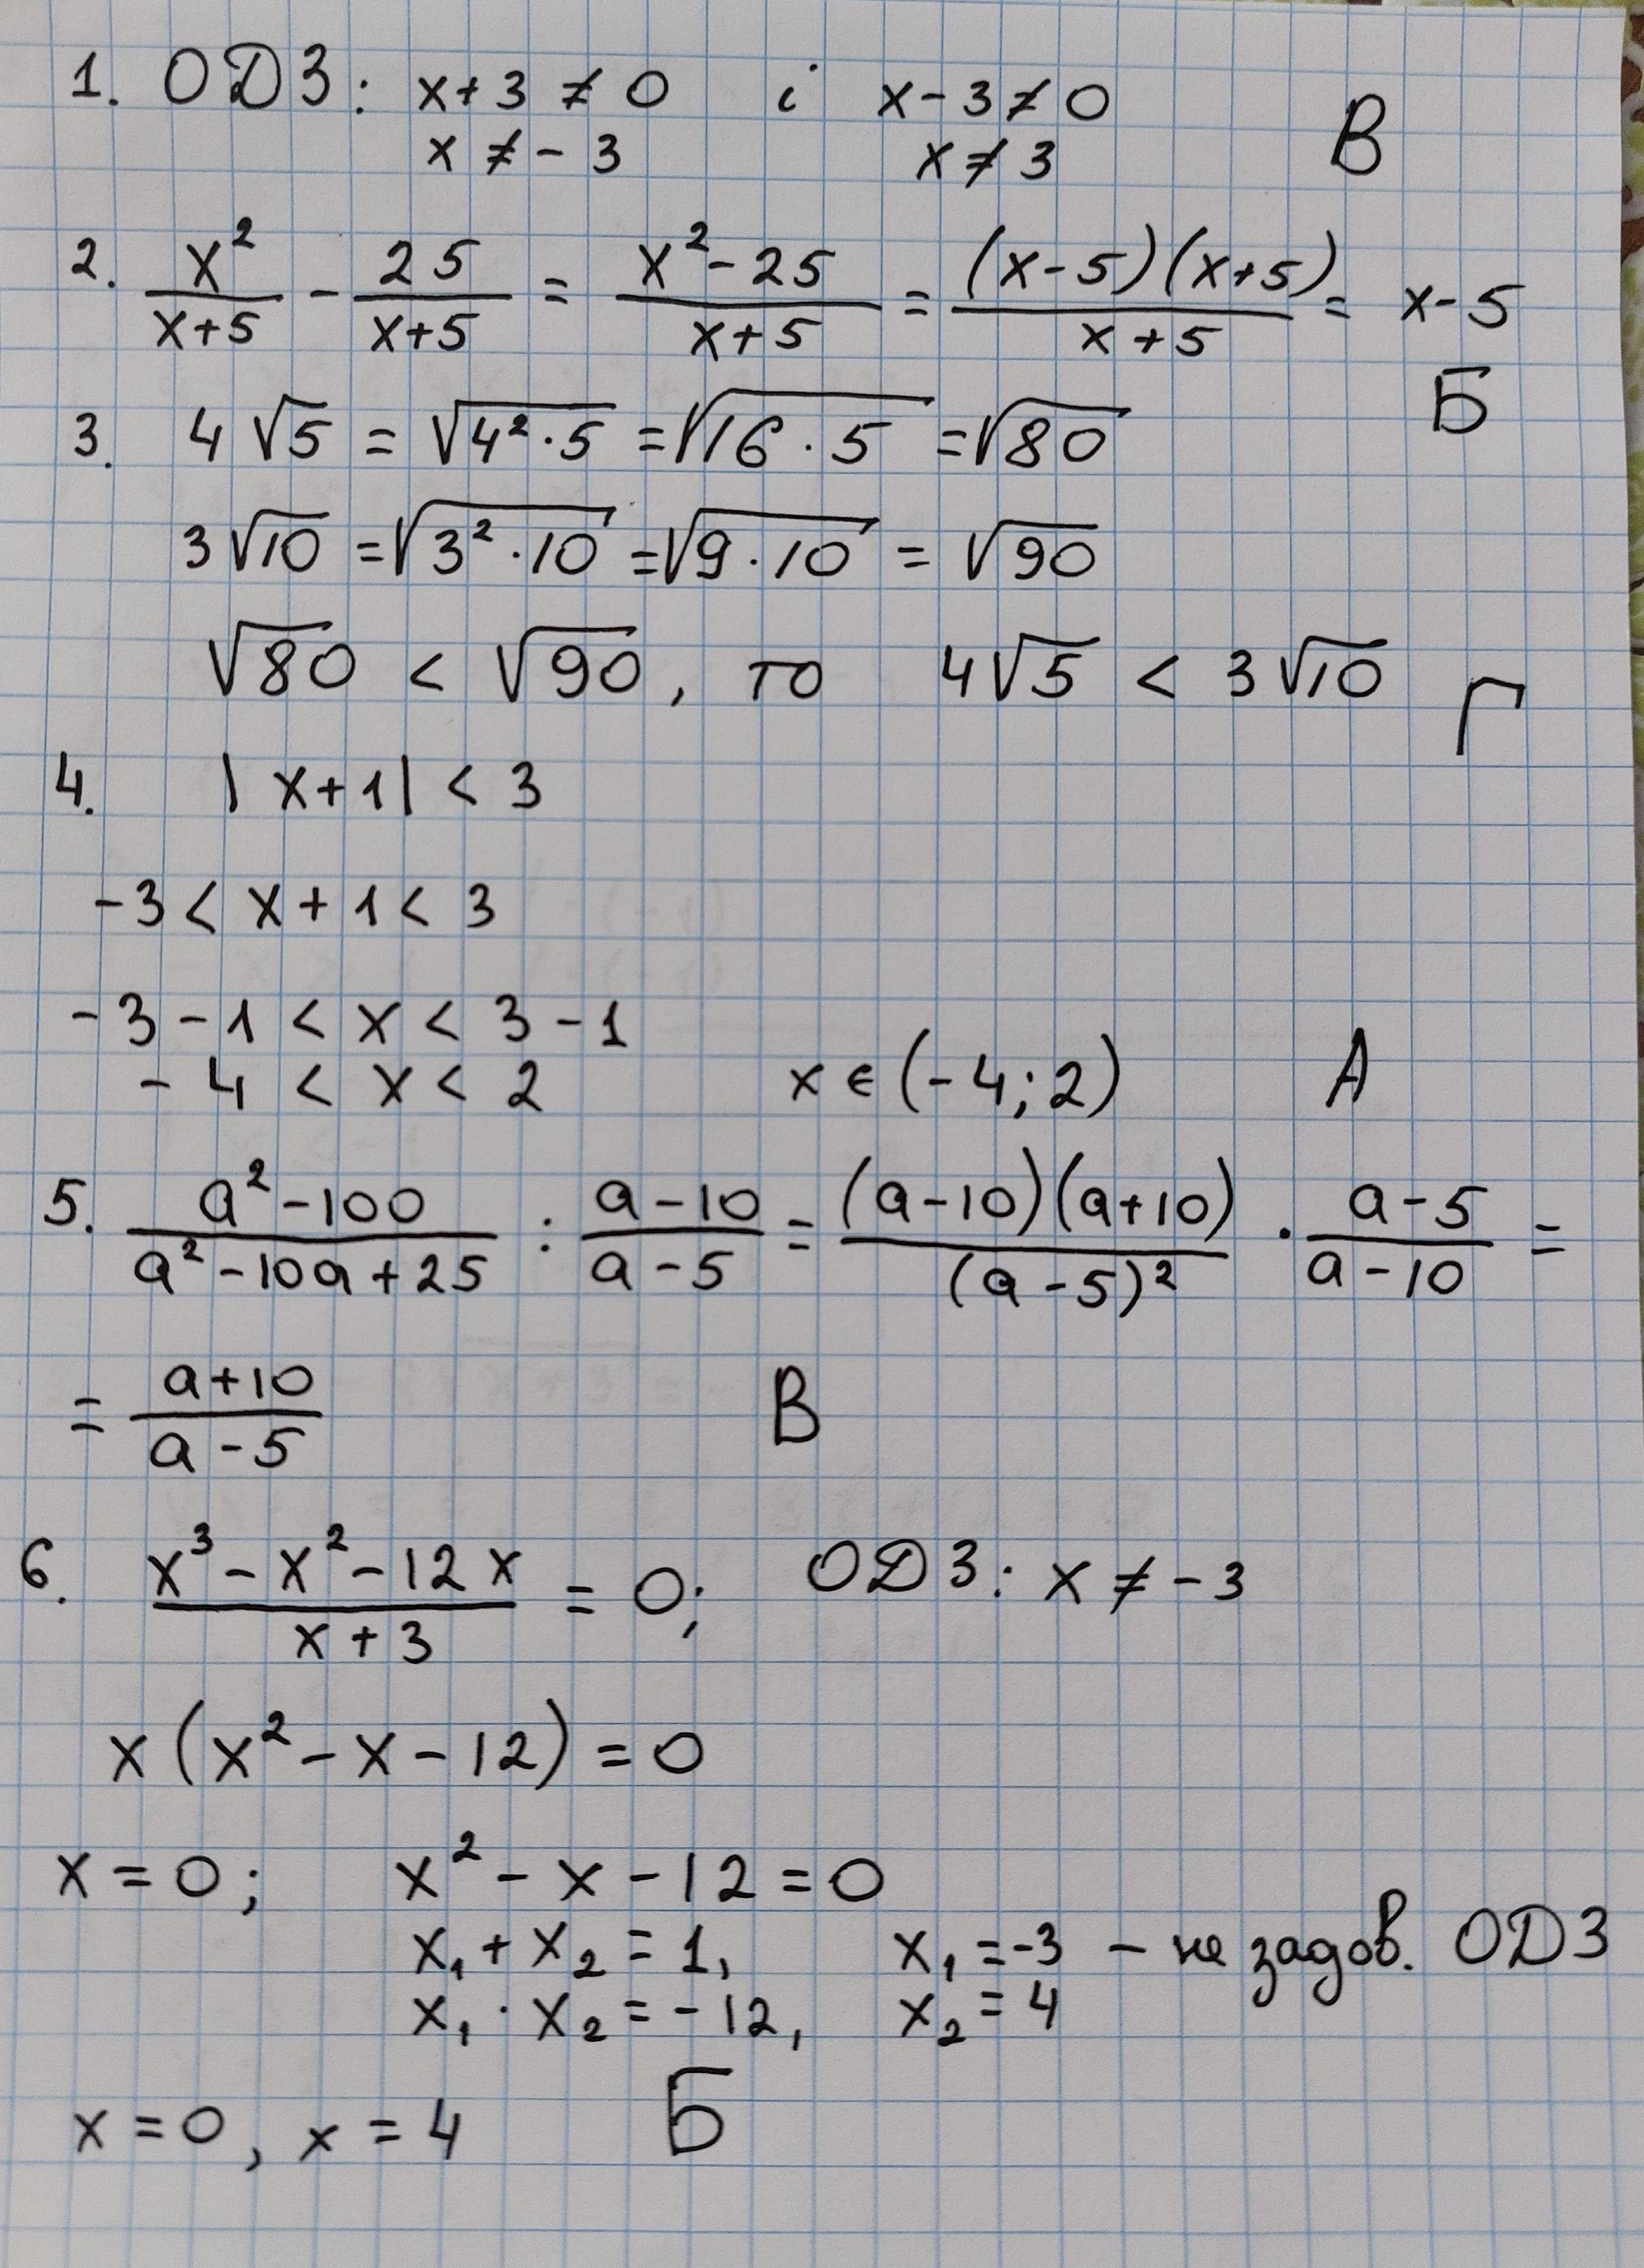 1. ОДЗ: x+3 ≠ 0 і x-3 ≠ 0
x ≠ -3 x ≠ 3 В
2. x²/(x+5) - 25/(x+5) = (x²-25)/(x+5) = (x-5)(x+5)/(x+5) = x-5
Б
3. 4√5 = √(4²·5) = √(16·5) = √80
3√10 = √(3²·10) = √(9·10) = √90
√80 < √90, то 4√5 < 3√10 Г
4. |x+1| < 3
-3 < x+1 < 3
-3-1 < x < 3-1
-4 < x < 2 x ∈ (-4; 2) А
5. (a²-100)/(a²-10a+25) : (a-10)/(a-5) = (a-10)(a+10)/(a-5)² · (a-5)/(a-10) =
= (a+10)/(a-5) В
6. (x³-x²-12x)/(x+3) = 0; ОДЗ: x ≠ -3
x(x²-x-12) = 0
x = 0; x²-x-12 = 0
x₁+x₂ = 1, x₁ = -3 - не задов. ОДЗ
x₁·x₂ = -12, x₂ = 4
x = 0, x = 4 Б